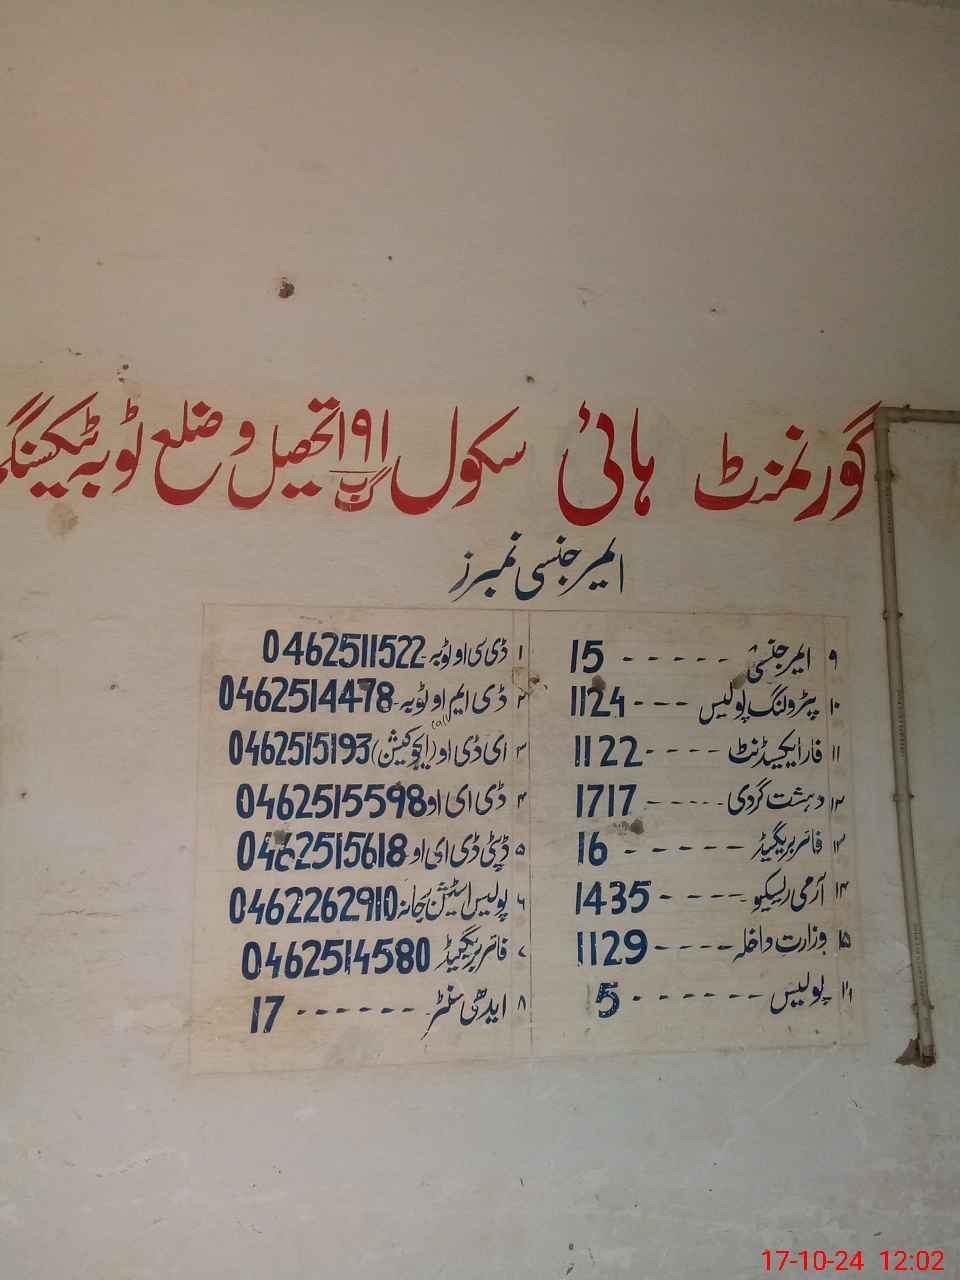 گورنمنٹ ہائی سکول ۱۹۱ گ ب تحصیل و ضلع ٹوبہ ٹیکسنگھ
ایمرجنسی نمبرز
۱ ڈی سی او ٹوبہ 0462511522
۲ ڈی ایم او ٹوبہ 0462514478
۳ ای ڈی او (ایجوکیشن) 0462515193
۴ ڈی ای او 0462515598
۵ ڈپٹی ڈی ای او 0462515618
۶ پولیس اسٹیشن رجانہ 0462262910
۷ فائر بریگیڈ 0462514580
۸ ایدھی سنٹر ------ 17
۹ ایمرجنسی ----- 15
۱۰ پٹرولنگ پولیس --- 1124
۱۱ فار ایکسیڈنٹ ---- 1122
۱۲ دہشت گردی ----- 1717
۱۳ فائر بریگیڈ ----- 16
۱۴ آرمی ریسکیو ---- 1435
۱۵ وزارت داخلہ ---- 1129
۱۶ پولیس ------ 5
17-10-24 12:02